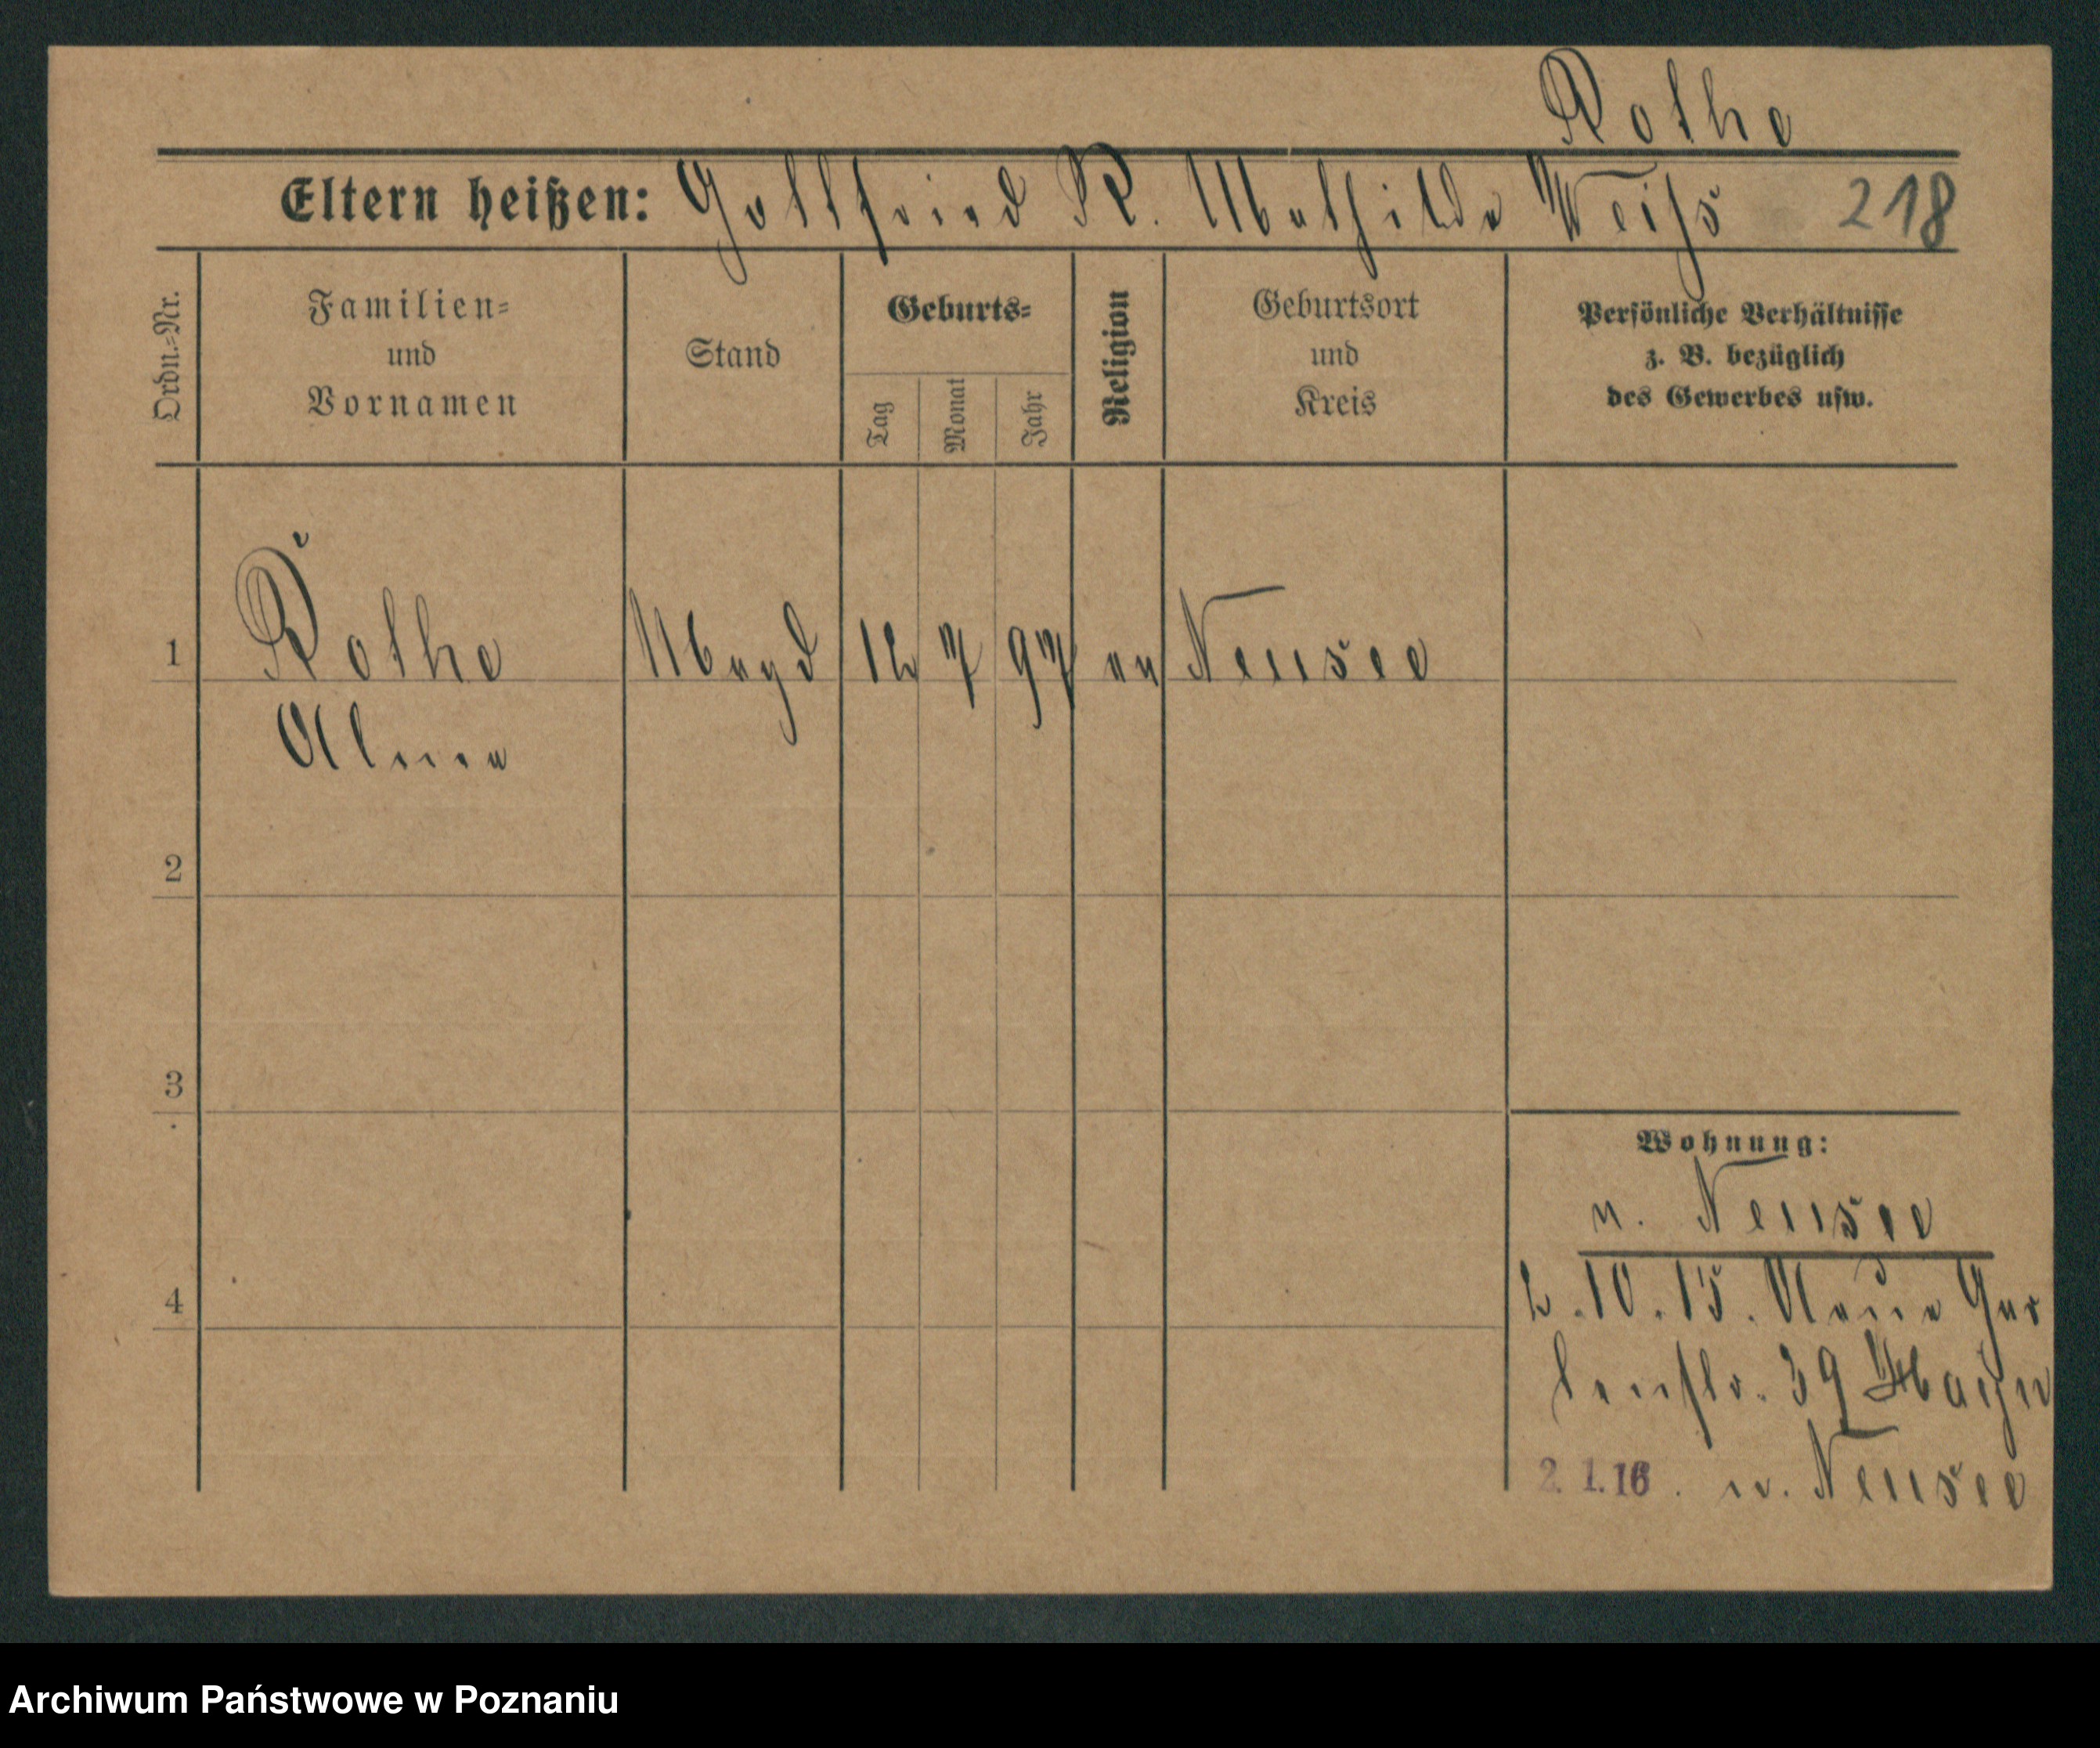 Rothe
Eltern heißen: Gottfried R. Mathilde Weiß 218
Ordn.-Nr.
Familien=
und
Vornamen
Stand
Geburts=
Tag
Monat
Jahr
Religion
Geburtsort
und
Kreis
Persönliche Verhältnisse
z. B. bezüglich
des Gewerbes usw.
1 Rothe Magd 12 7 97 ev Neusee
Alma
2
3
4
Wohnung:
n. Neusee
2.10.15. Neue Gar
tenstr. 39
2.1.16. n. Neusee
Archiwum Państwowe w Poznaniu